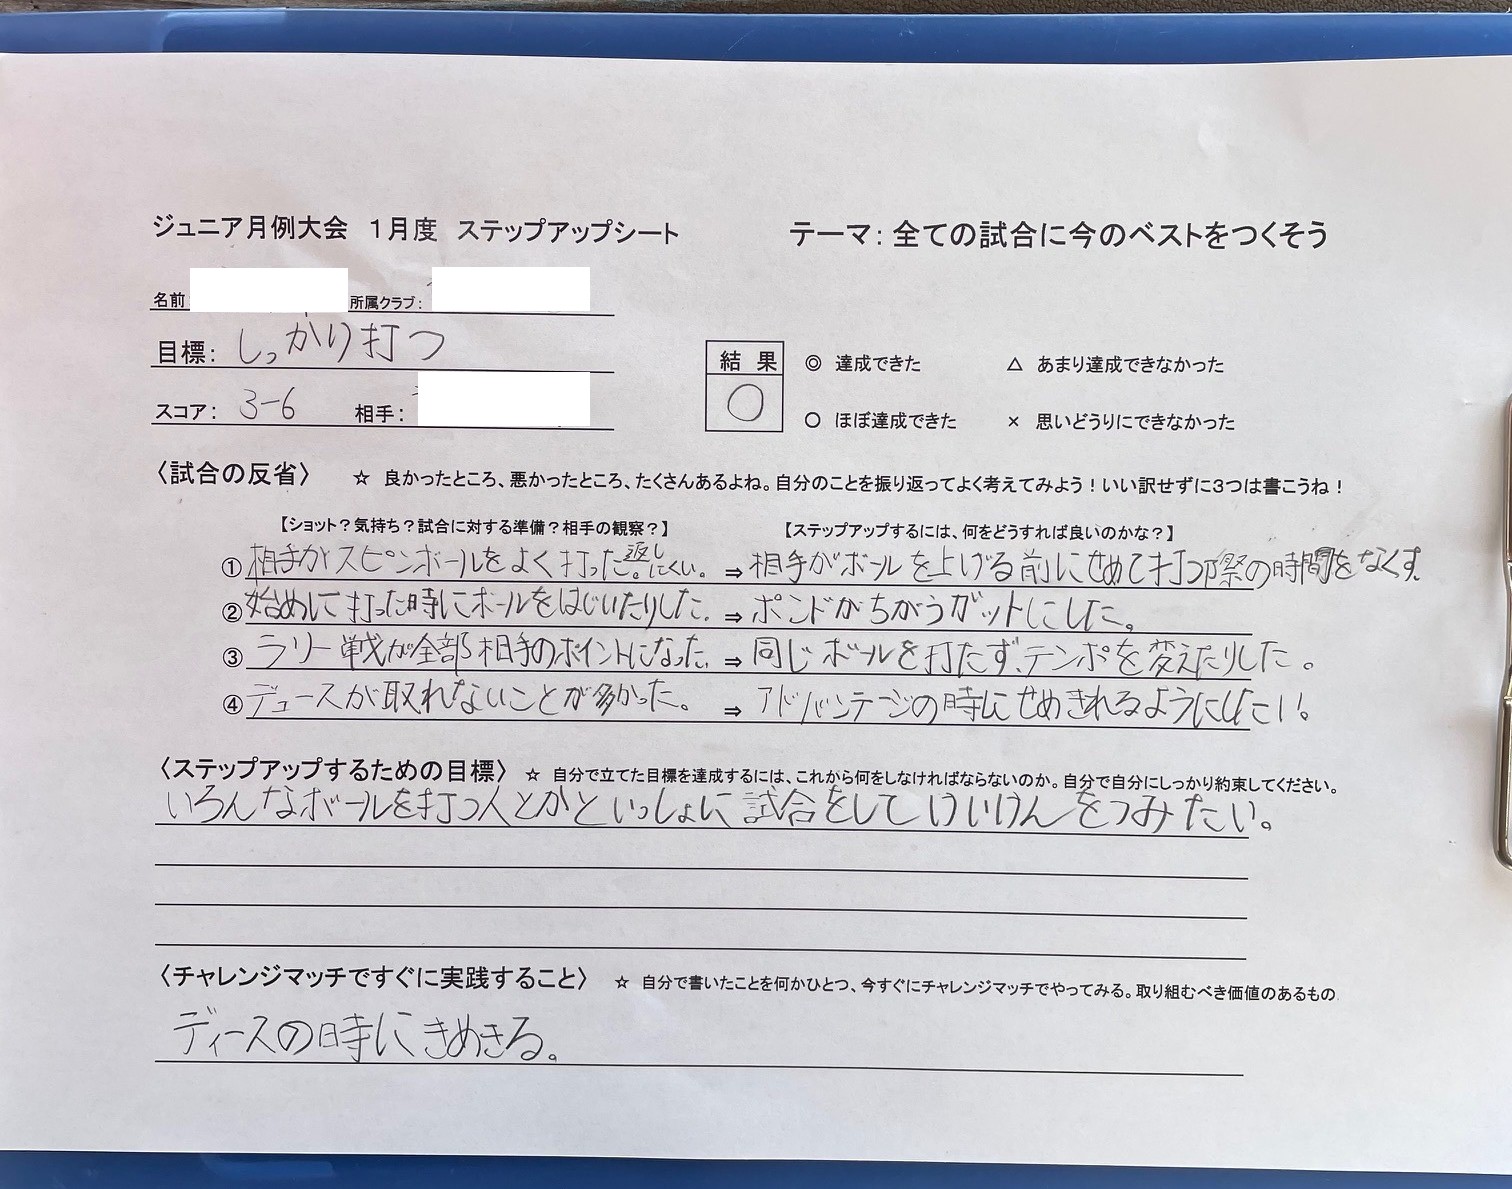 ジュニア月例大会 1月度 ステップアップシート テーマ：全ての試合に今のベストをつくそう
名前： 所属クラブ：
目標： しっかり打つ
スコア： 3-6 相手：
結果 ◎ 達成できた △ あまり達成できなかった
○ ○ ほぼ達成できた × 思いどうりにできなかった
〈試合の反省〉 ☆ 良かったところ、悪かったところ、たくさんあるよね。自分のことを振り返ってよく考えてみよう！いい訳せずに3つは書こうね！
【ショット？気持ち？試合に対する準備？相手の観察？】 【ステップアップするには、何をどうすれば良いのかな？】
① 相手がスピンボールをよく打った。返しにくい。 ⇒ 相手がボールを上げる前にせめて打つ際の時間をなくす。
② 始めして打った時にボールをはじいたりした。 ⇒ ポンドがちがうガットにした。
③ ラリー戦が全部相手のポイントになった。 ⇒ 同じボールを打たず、テンポを変えたりした。
④ デュースが取れないことが多かった。 ⇒ アドバンテージの時にせめきれるようにしたい。
〈ステップアップするための目標〉 ☆ 自分で立てた目標を達成するには、これから何をしなければならないのか。自分で自分にしっかり約束してください。
いろんなボールを打つ人とかといっしょに試合をしてけいけんをつみたい。
〈チャレンジマッチですぐに実践すること〉 ☆ 自分で書いたことを何かひとつ、今すぐにチャレンジマッチでやってみる。取り組むべき価値のあるもの
ディースの時にきめきる。